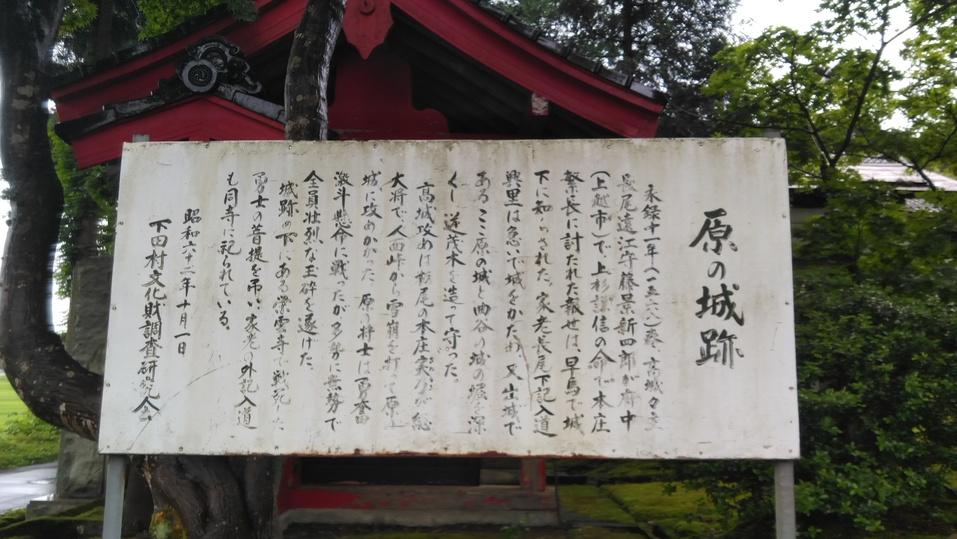 原の城跡
永録十一年(一五六八)春、高城々主
長尾遠江守藤景新四郎が府中
(上越市)で上杉謙信の命で本庄
繁長に討たれた報せは、早馬で城
下に知らされた。家老長尾下記入道
興里は急いで城をかため、又出城で
あるここ原の城と曲谷の城の堀を深
くし逆茂木を造って守った。
高城攻めは栃尾の本庄実乃が総
大将で人面峠から雪崩を打って原上
城に攻めかかった。原の将士は勇奮
激斗懸命に戦ったが多勢に無勢で
全員壮烈な玉砕を遂げた。
城跡の下にある常雲寺で戦死した
勇士の菩提を弔い、家老の外記入道
も同寺に祀られている。
昭和六十二年十月一日
下田村文化財調査研究会